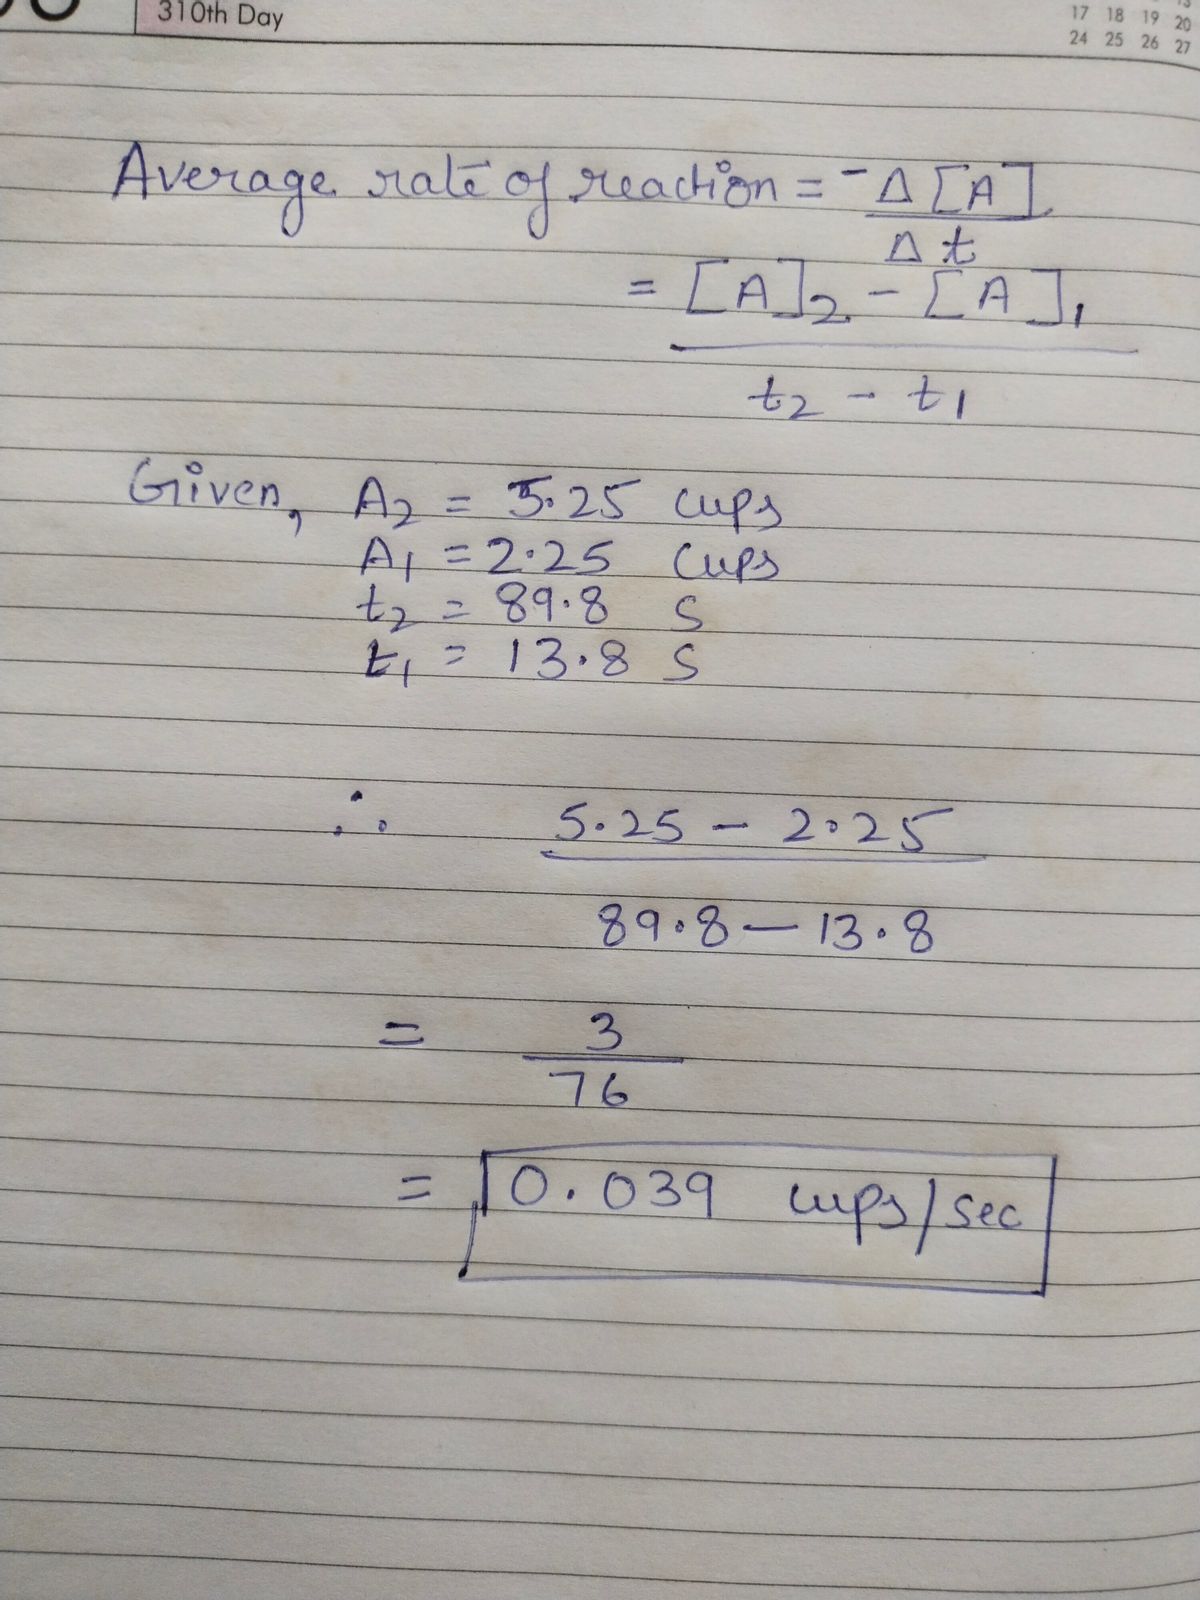 310th Day
17 18 19 20
24 25 26 27
Average rate of reaction = -Δ[A]
Δt
= [A]2 - [A]1
t2 - t1
Given, A2 = 5.25 cups
A1 = 2.25 cups
t2 = 89.8 s
t1 = 13.8 s
∴ 5.25 - 2.25
89.8 - 13.8
= 3
76
= 0.039 cups/sec